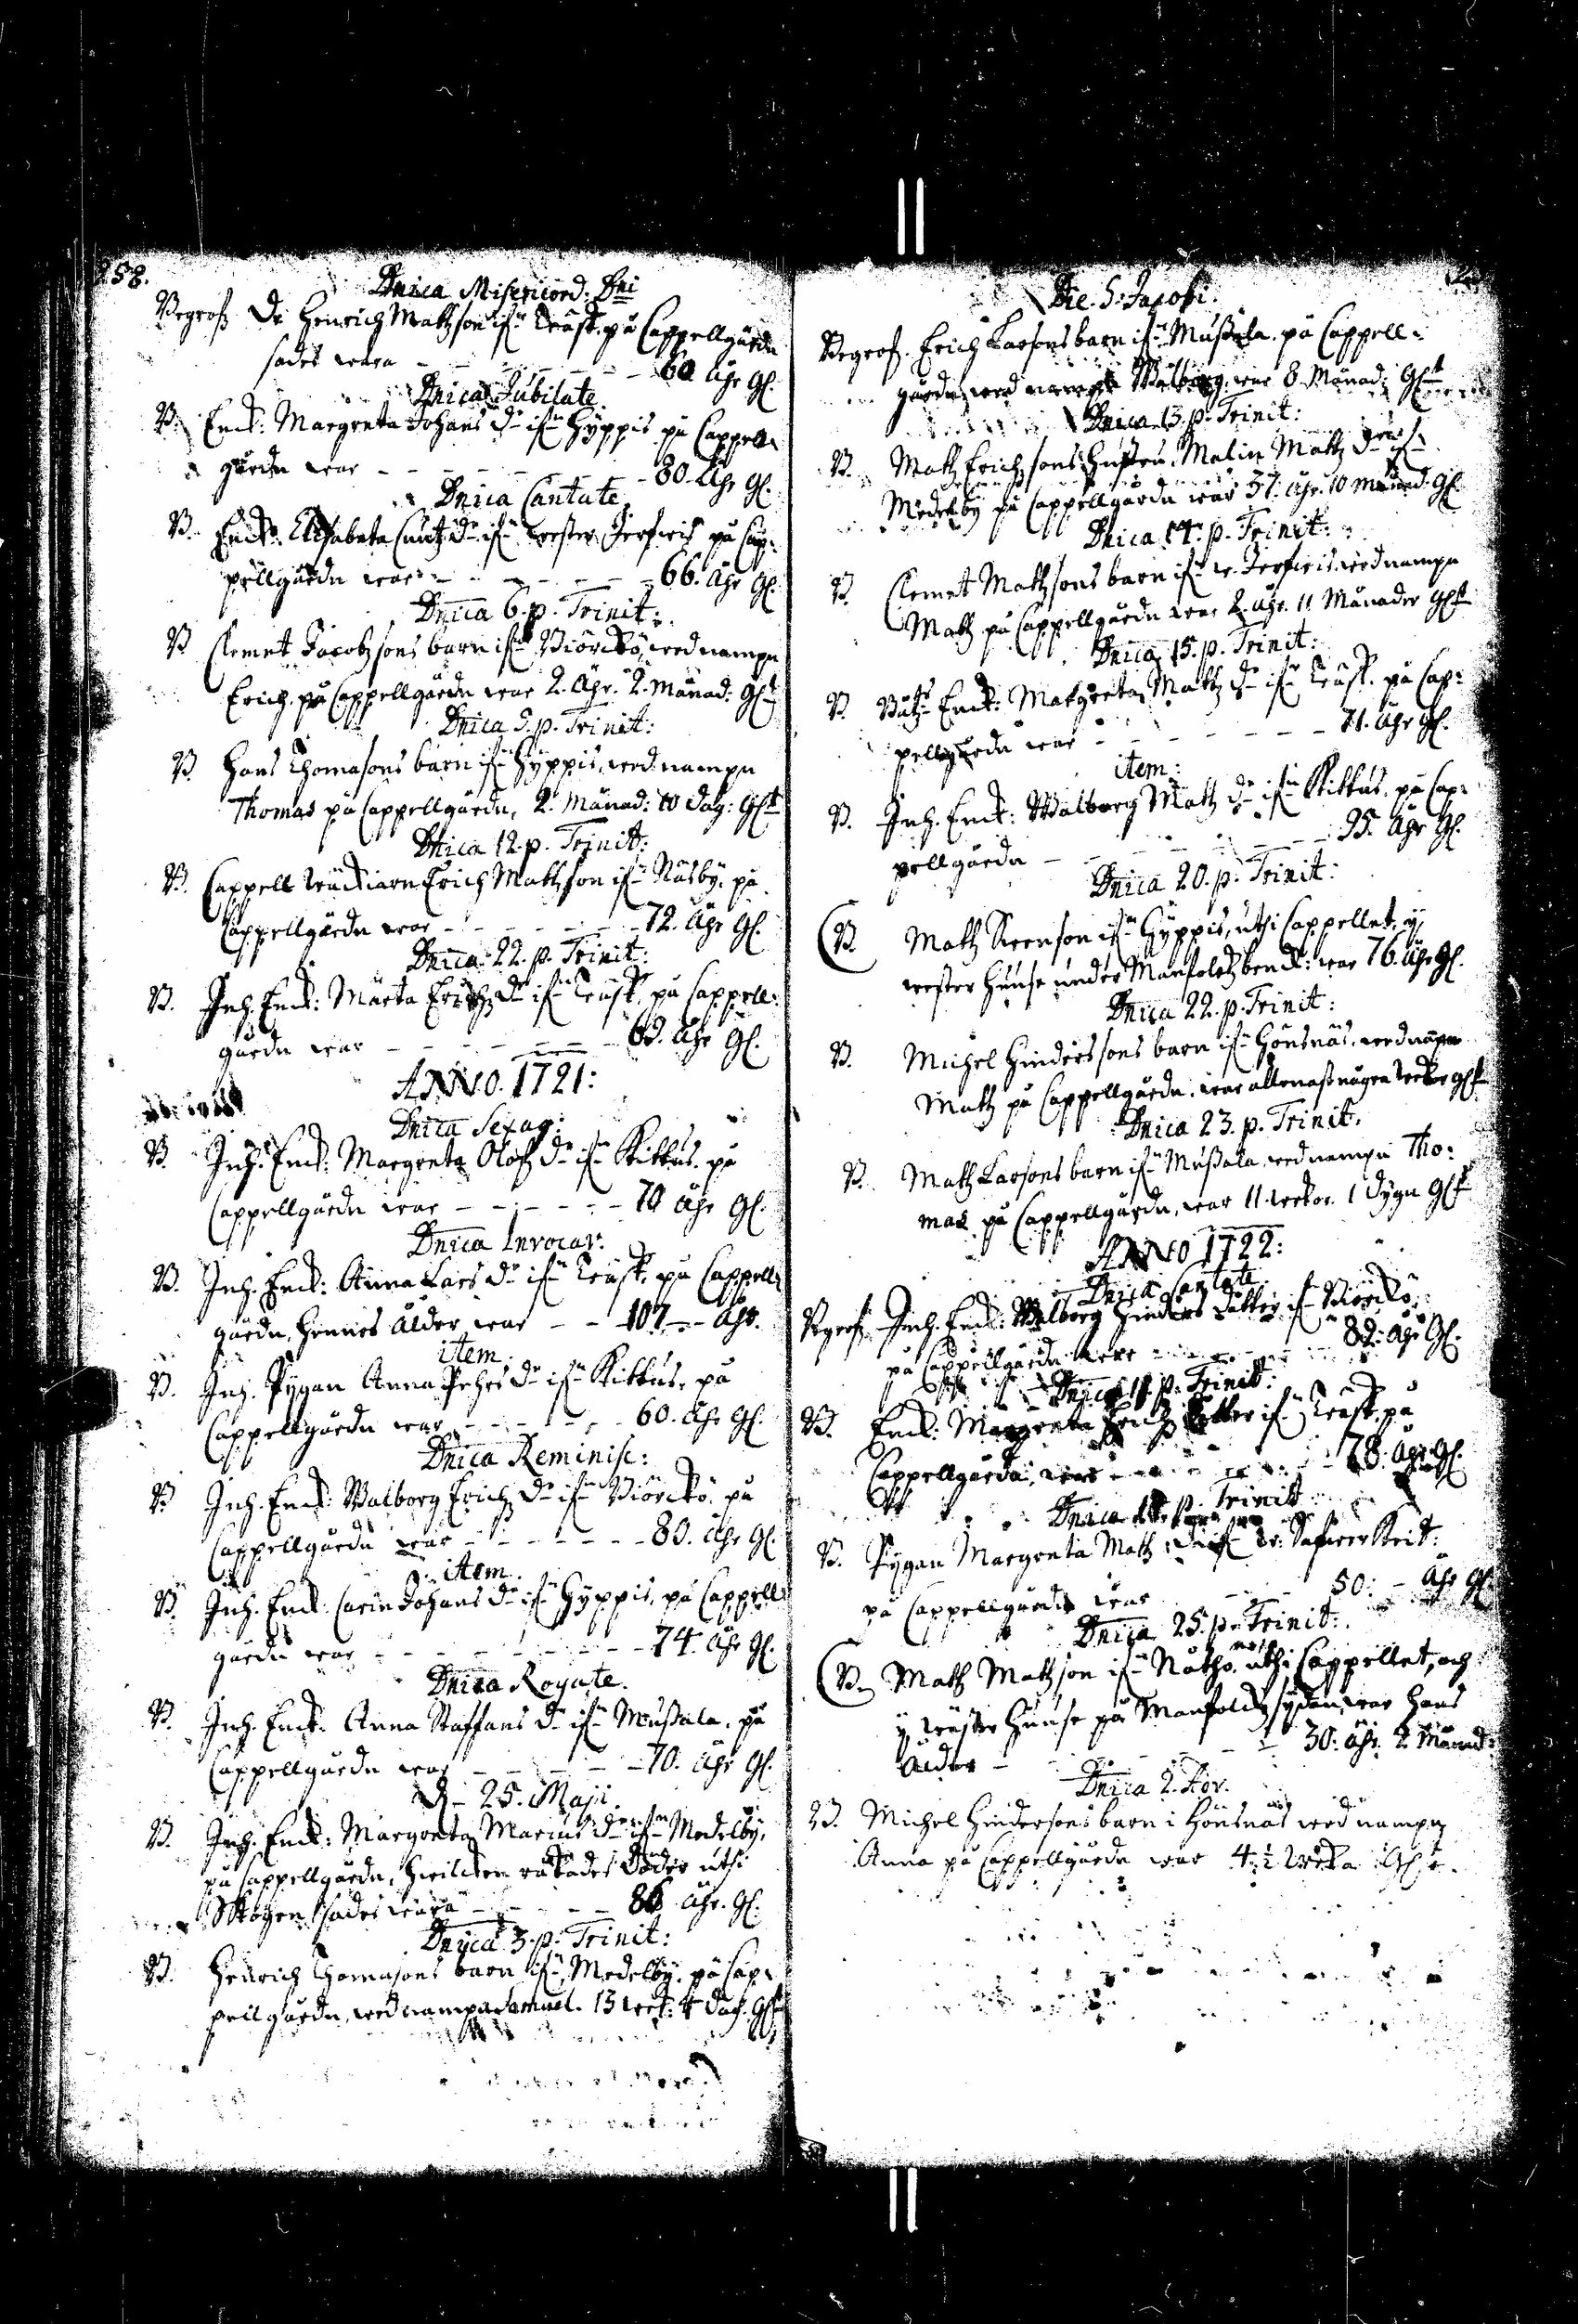 258.
Dnica Misericord: Dni
Begrofz Dr Henrich Mattzson ifrn Träsk, på Cappellgårdn
sades wara - - - - - - 60 åhr gl.
Dnica Jubilate.
B. Enck: Margreta Johans dr ifrn Hyppis på Cappell-
gårdn war - - - - - - 80. åhr gl.
Dnica Cantate.
B. Enck: Elisabeta Cnutz dr ifrn wester Jerfwis på Cap-
pellgårdn war - - - - - - 66. åhr gl.
Dnica 6. p. Trinit:
B. Clemet Jacobzsons barn ifrn Biörckö, wed nampn
Erich på Cappellgårdn war 2. åhr. 2. Månad: glt
Dnica 9. p. Trinit:
B. Hans Thomasons barn ifrn Hyppis, wed nampn
Thomas på Cappellgårdn, 2. Månad: 10 dag: glt
Dnica 12. p. Trinit:
B. Cappell wäcktiarn Erich Mattzson ifrn Näsby, på
Cappellgårdn war - - - - - - 72. åhr gl.
Dnica 22. p. Trinit:
B. Inh. Enck: Märta Erichz dr ifrn Träsk, på Cappell-
gårdn war - - - - - - 69. åhr gl.
ANNO. 1721:
Dnica Sexag:
B. Inh. Enck: Margreta Olofz dr ifrn Kittus, på
Cappellgårdn war - - - - - - 70 åhr gl.
Dnica Invocav:
B. Inh. Enck: Anna Lars dr ifrn Träsk, på Cappell-
gårdn, hennes ålder war - - 107 - - åhr.
item.
B. Inh. Pygan Anna Pehrs dr ifrn Kittus, på
Cappellgårdn war - - - - - 60. åhr gl.
Dnica Reminisc:
B. Inh. Enck: Walborg Erichz dr ifrn Biörckö, på
Cappellgårdn war - - - - - - 80. åhr gl.
item.
B. Inh. Enck: Carin Johans dr ifrn Hyppis, på Cappell-
gårdn war - - - - - - 74. åhr gl.
Dnica Rogate.
B. Inh. Enck: Anna Staffans dr ifrn Mussala, på
Cappellgårdn war - - - - - 70. åhr gl.
d. 25. Maji.
B. Inh. Enck: Margreta Marcus dr ifrn Medelby,
på Cappellgårdn, hwilcken råkades döder uthi
Skogen, sades wara - - - - - åhr. gl.
Dnica 3. p. Trinit:
B. Henrich Thomasons barn ifrn Medelby, på Cap-
pellgårdn, wed nampn Samuel. 13 wek: 4 dag. glt
Die. S: Jacobi.
Begrof. Erich Larsons barn ifrn Mussala, på Cappell-
gårdn, wed nampn Walborg, war 8. Månad: glt
Dnica 13. p. Trinit:
B. Mattz Erichzsons hustru, Malin Mattz dr ifrn
Medelby på Cappellgårdn war 37. åhr. 10 månad. gl.
Dnica 14. p. Trinit:
B. Clemet Mattzsons barn ifrn w. Jerfwis, wed nampn
Mattz på Cappellgårdn war 2. åhr. 11 Månader glt
Dnica 15. p. Trinit:
B. Enck: Margreta Mattz dr ifrn Träsk, på Cap-
pellgårdn war - - - - - - 71. åhr gl.
item:
B. Inh. Enck: Walborg Mattz dr ifrn Kittus, på Cap-
pellgårdn - - - - - - 95. åhr gl.
Dnica 20. p. Trinit:
(B. Mattz Swenson ifrn Hyppis, uthi Cappellet, y
wester Hunse under Manfolckz benck: war 76. åhr gl.
Dnica 22. p. Trinit:
B. Michel Hinderssons barn ifrn Hönsnäs, wed nampn
Mattz på Cappellgårdn, war allenast någre weckor glt
Dnica 23. p. Trinit.
B. Mattz Larsons barn ifrn Mussala, wed nampn Tho-
mas på Cappellgårdn, war 11 weckor. 1 dygn glt
ANNO 1722:
Dnica Cantate.
Begrof. Inh. Enck: Walborg Hinders dotter ifrn Biörckö,
på Cappellgårdn war - - - - - - 82. åhr gl.
Dnica p. Trinit:
B. Enck: Margreta Erichz dotter ifrn Träsk, på
Cappellgårdn, war - - - - - 78. åhr gl.
Dnica p. Trinit
B. Pygan Margreta Mattz
på Cappellgårdn war - - - 50: - åhr gl.
Dnica 25. p. Trinit:
(B. Mattz Mattzson ifrn uthi Cappellet, och
y wäster Hunse på Manfolckz sydan, war hans
ålder - - - - - - 30. åhr. 2 Månad:
Dnica 2. Adv.
B. Michel Hindersons barn i Hönsnäs wed nampn
Anna på Cappellgårdn war 4 1/2 Wecka